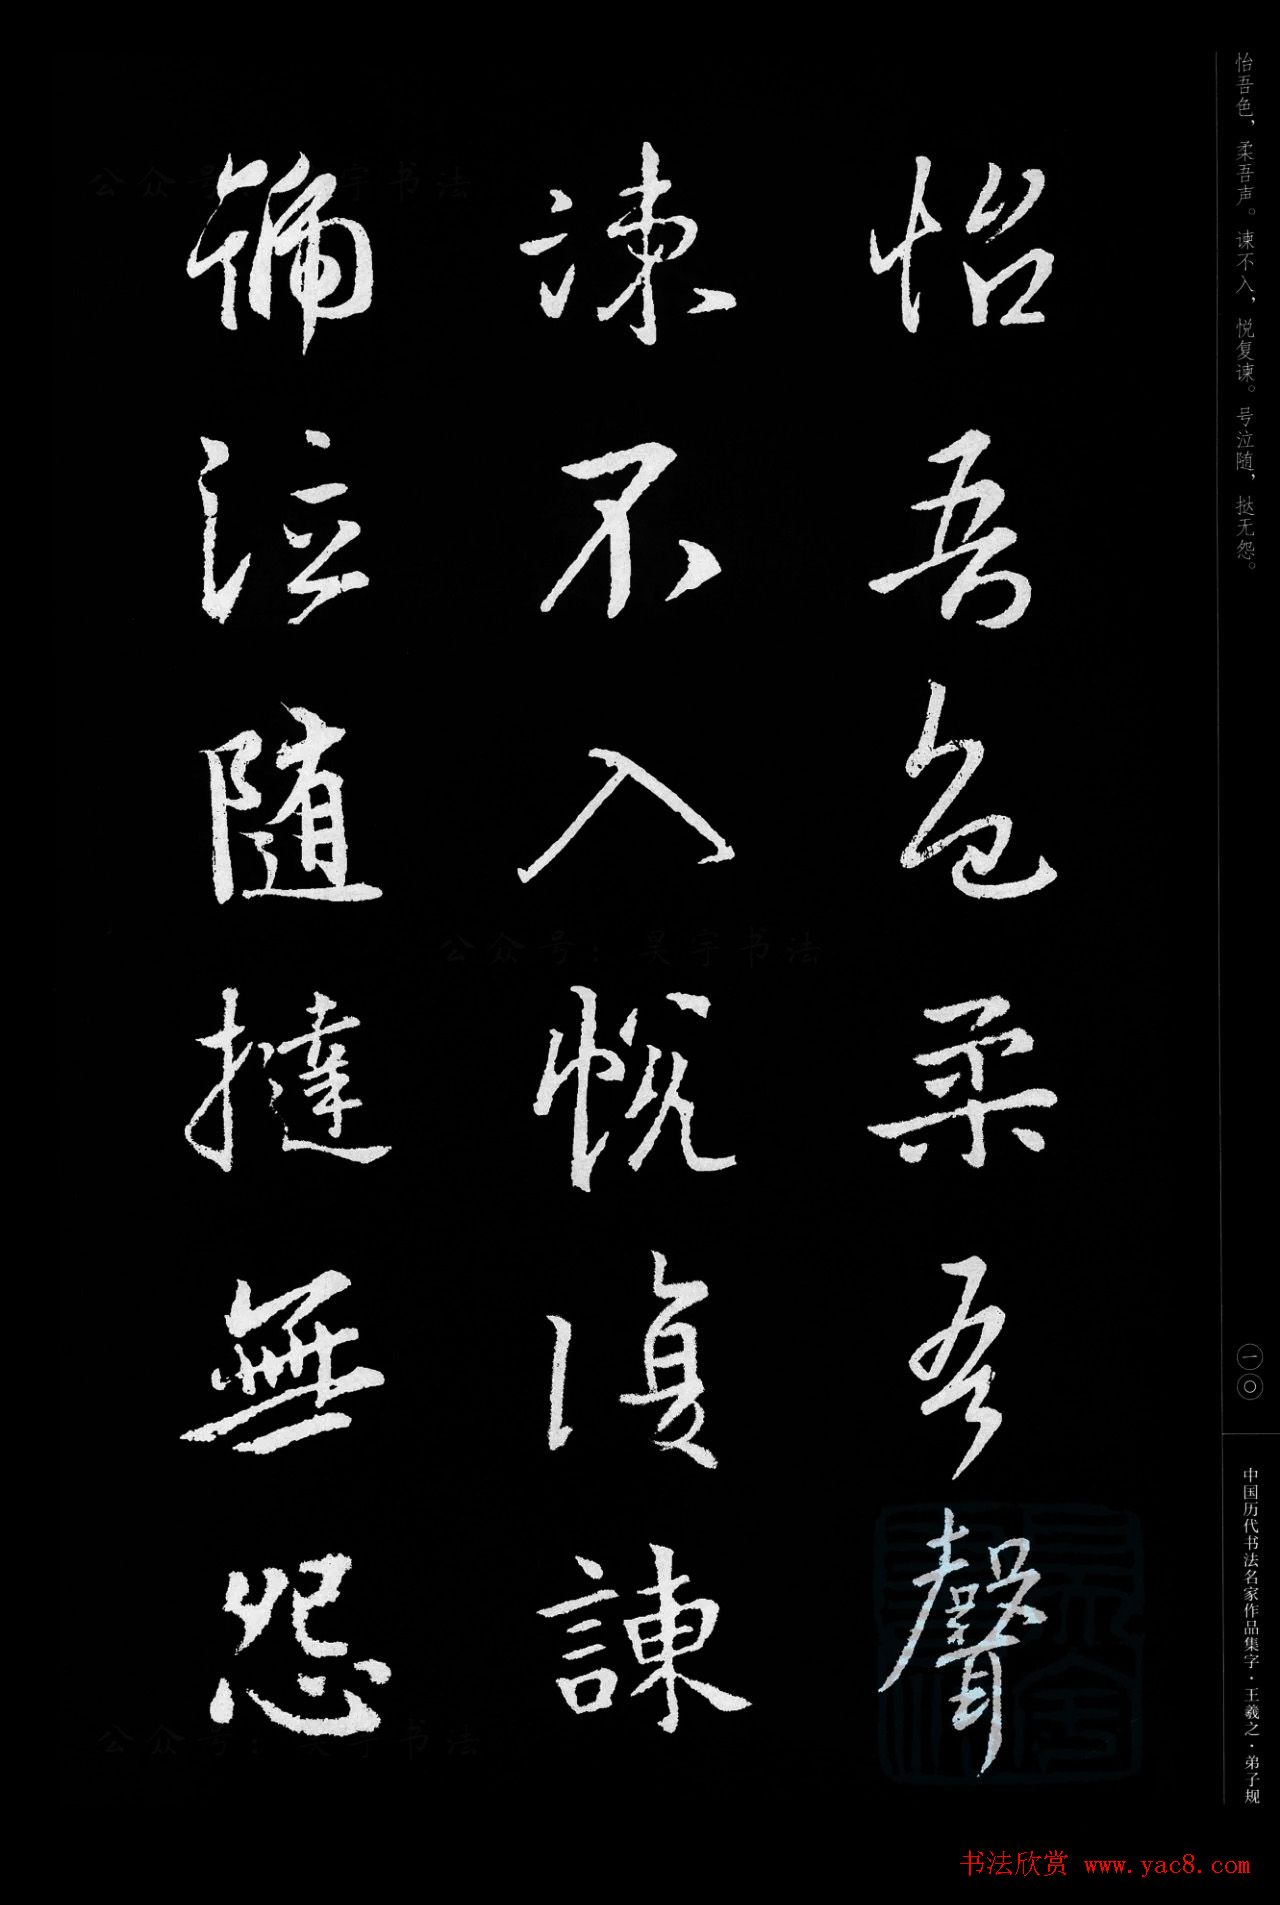 怡吾色，柔吾声。谏不入，悦复谏。号泣随，挞无怨。
怡吾色柔吾聲
諫不入悅復諫
號泣隨撻無怨
一〇
中国历代书法名家作品集字·王羲之·弟子规
公众号：昊宇书法
公众号：昊宇书法
公众号：昊宇书法
书法欣赏 www.yac8.com